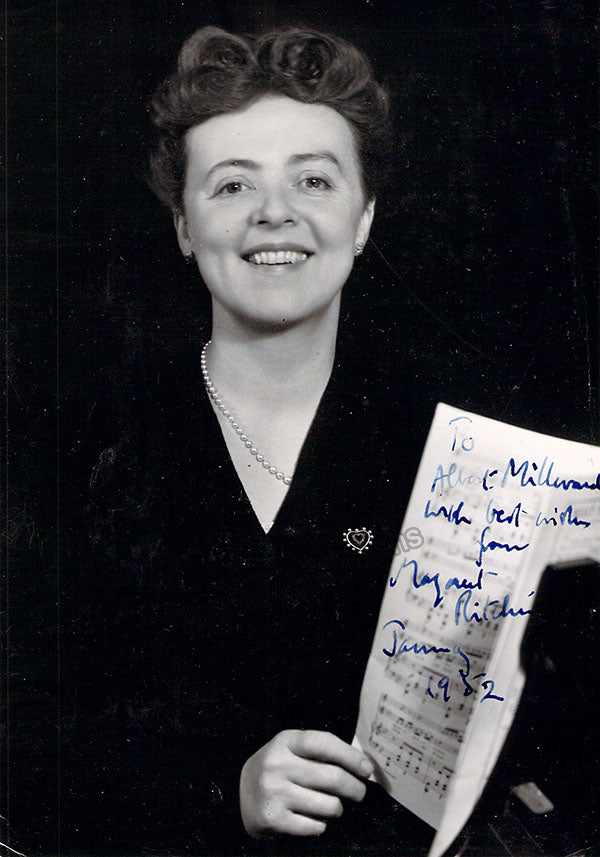 To
Albert Millward
with best wishes
from
Margaret
Ritchie
January
1952